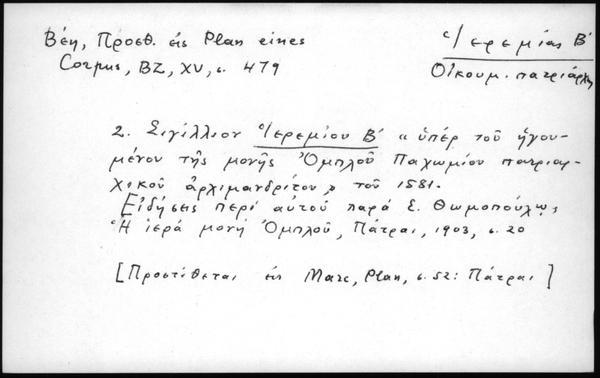 Βέη, Προσθ. εἰς Plan eines
Corpus, BZ, XV, σ. 479
Ἱερεμίας Β'
Οἰκουμ. πατριάρχης
2. Σιγίλλιον Ἱερεμίου Β' « ὑπέρ τοῦ ἡγου-
μένου τῆς μονῆς Ὀμπλοῦ Παχωμίου πατριαρ-
χικοῦ ἀρχιμανδρίτου » τοῦ 1581.
Εἰδήσεις περί αὐτοῦ παρά Σ. Θωμοπούλῳ,
Ἡ ἱερά μονή Ὀμπλοῦ, Πάτραι, 1903, σ. 20
[Προστίθεται εἰς Marc, Plan, σ. 52: Πάτραι]